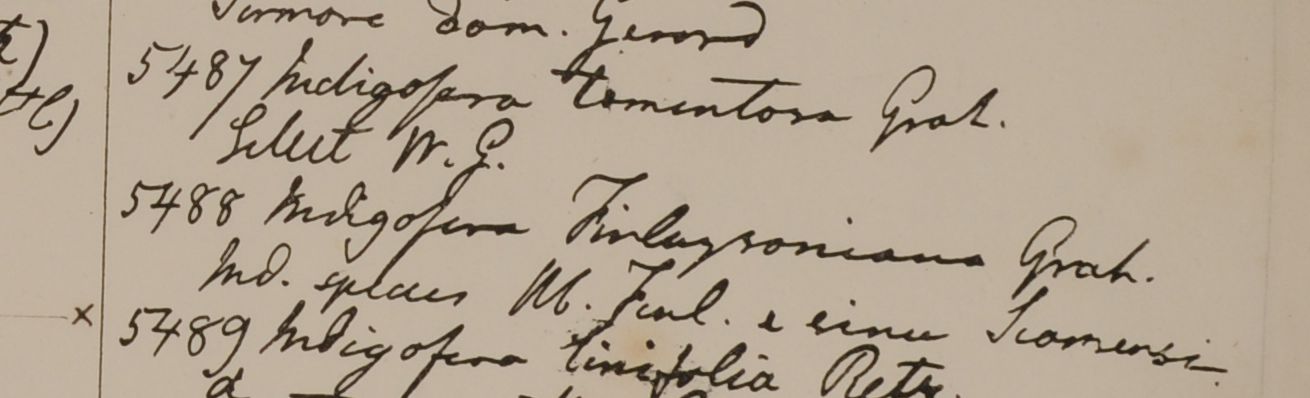 Sirmore dom. Gerard
5487 Indigofera tomentosa Grah.
Silhet W. G.
5488 Indigofera Finlaysoniana Grah.
Ind. species Hb. Finl. e sinu Siamensi
x
5489 Indigofera linifolia Retz.
a